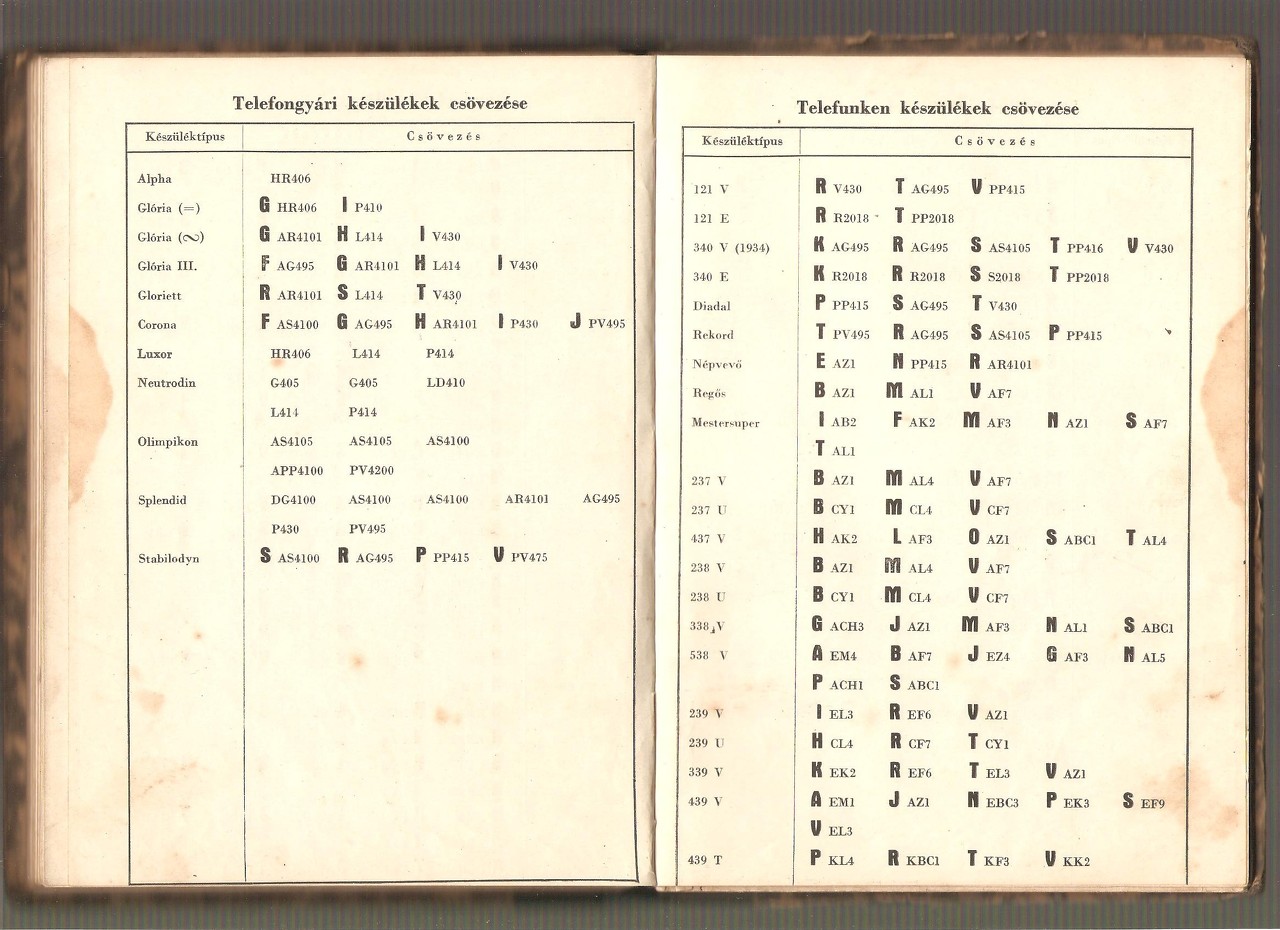 Telefongyári készülékek csövezése
Készüléktípus Csövezés
Alpha HR406
Glória (=) G HR406 I P410
Glória (∾) G AR4101 H L414 I V430
Glória III. F AG495 G AR4101 H L414 I V430
Gloriett R AR4101 S L414 T V430
Corona F AS4100 G AG495 H AR4101 I P430 J PV495
Luxor HR406 L414 P414
Neutrodin G405 G405 LD410
L414 P414
Olimpikon AS4105 AS4105 AS4100
APP4100 PV4200
Splendid DG4100 AS4100 AS4100 AR4101 AG495
P430 PV495
Stabilodyn S AS4100 R AG495 P PP415 V PV475
Telefunken készülékek csövezése
Készüléktípus Csövezés
121 V R V430 T AG495 V PP415
121 E R R2018 T PP2018
340 V (1934) K AG495 R AG495 S AS4105 T PP416 V V430
340 E K R2018 R R2018 S S2018 T PP2018
Diadal P PP415 S AG495 T V430
Rekord T PV495 R AG495 S AS4105 P PP415
Népvevő E AZ1 N PP415 R AR4101
Regős B AZ1 M AL1 V AF7
Mestersuper I AB2 F AK2 M AF3 N AZ1 S AF7
T AL1
237 V B AZ1 M AL4 V AF7
237 U B CY1 M CL4 V CF7
437 V H AK2 L AF3 O AZ1 S ABC1 T AL4
238 V B AZ1 M AL4 V AF7
238 U B CY1 M CL4 V CF7
338 V G ACH3 J AZ1 M AF3 N AL1 S ABC1
538 V A EM4 B AF7 J EZ4 G AF3 N AL5
P ACH1 S ABC1
239 V I EL3 R EF6 V AZ1
239 U H CL4 R CF7 T CY1
339 V K EK2 R EF6 T EL3 V AZ1
439 V A EM1 J AZ1 N EBC3 P EK3 S EF9
V EL3
439 T P KL4 R KBC1 T KF3 V KK2